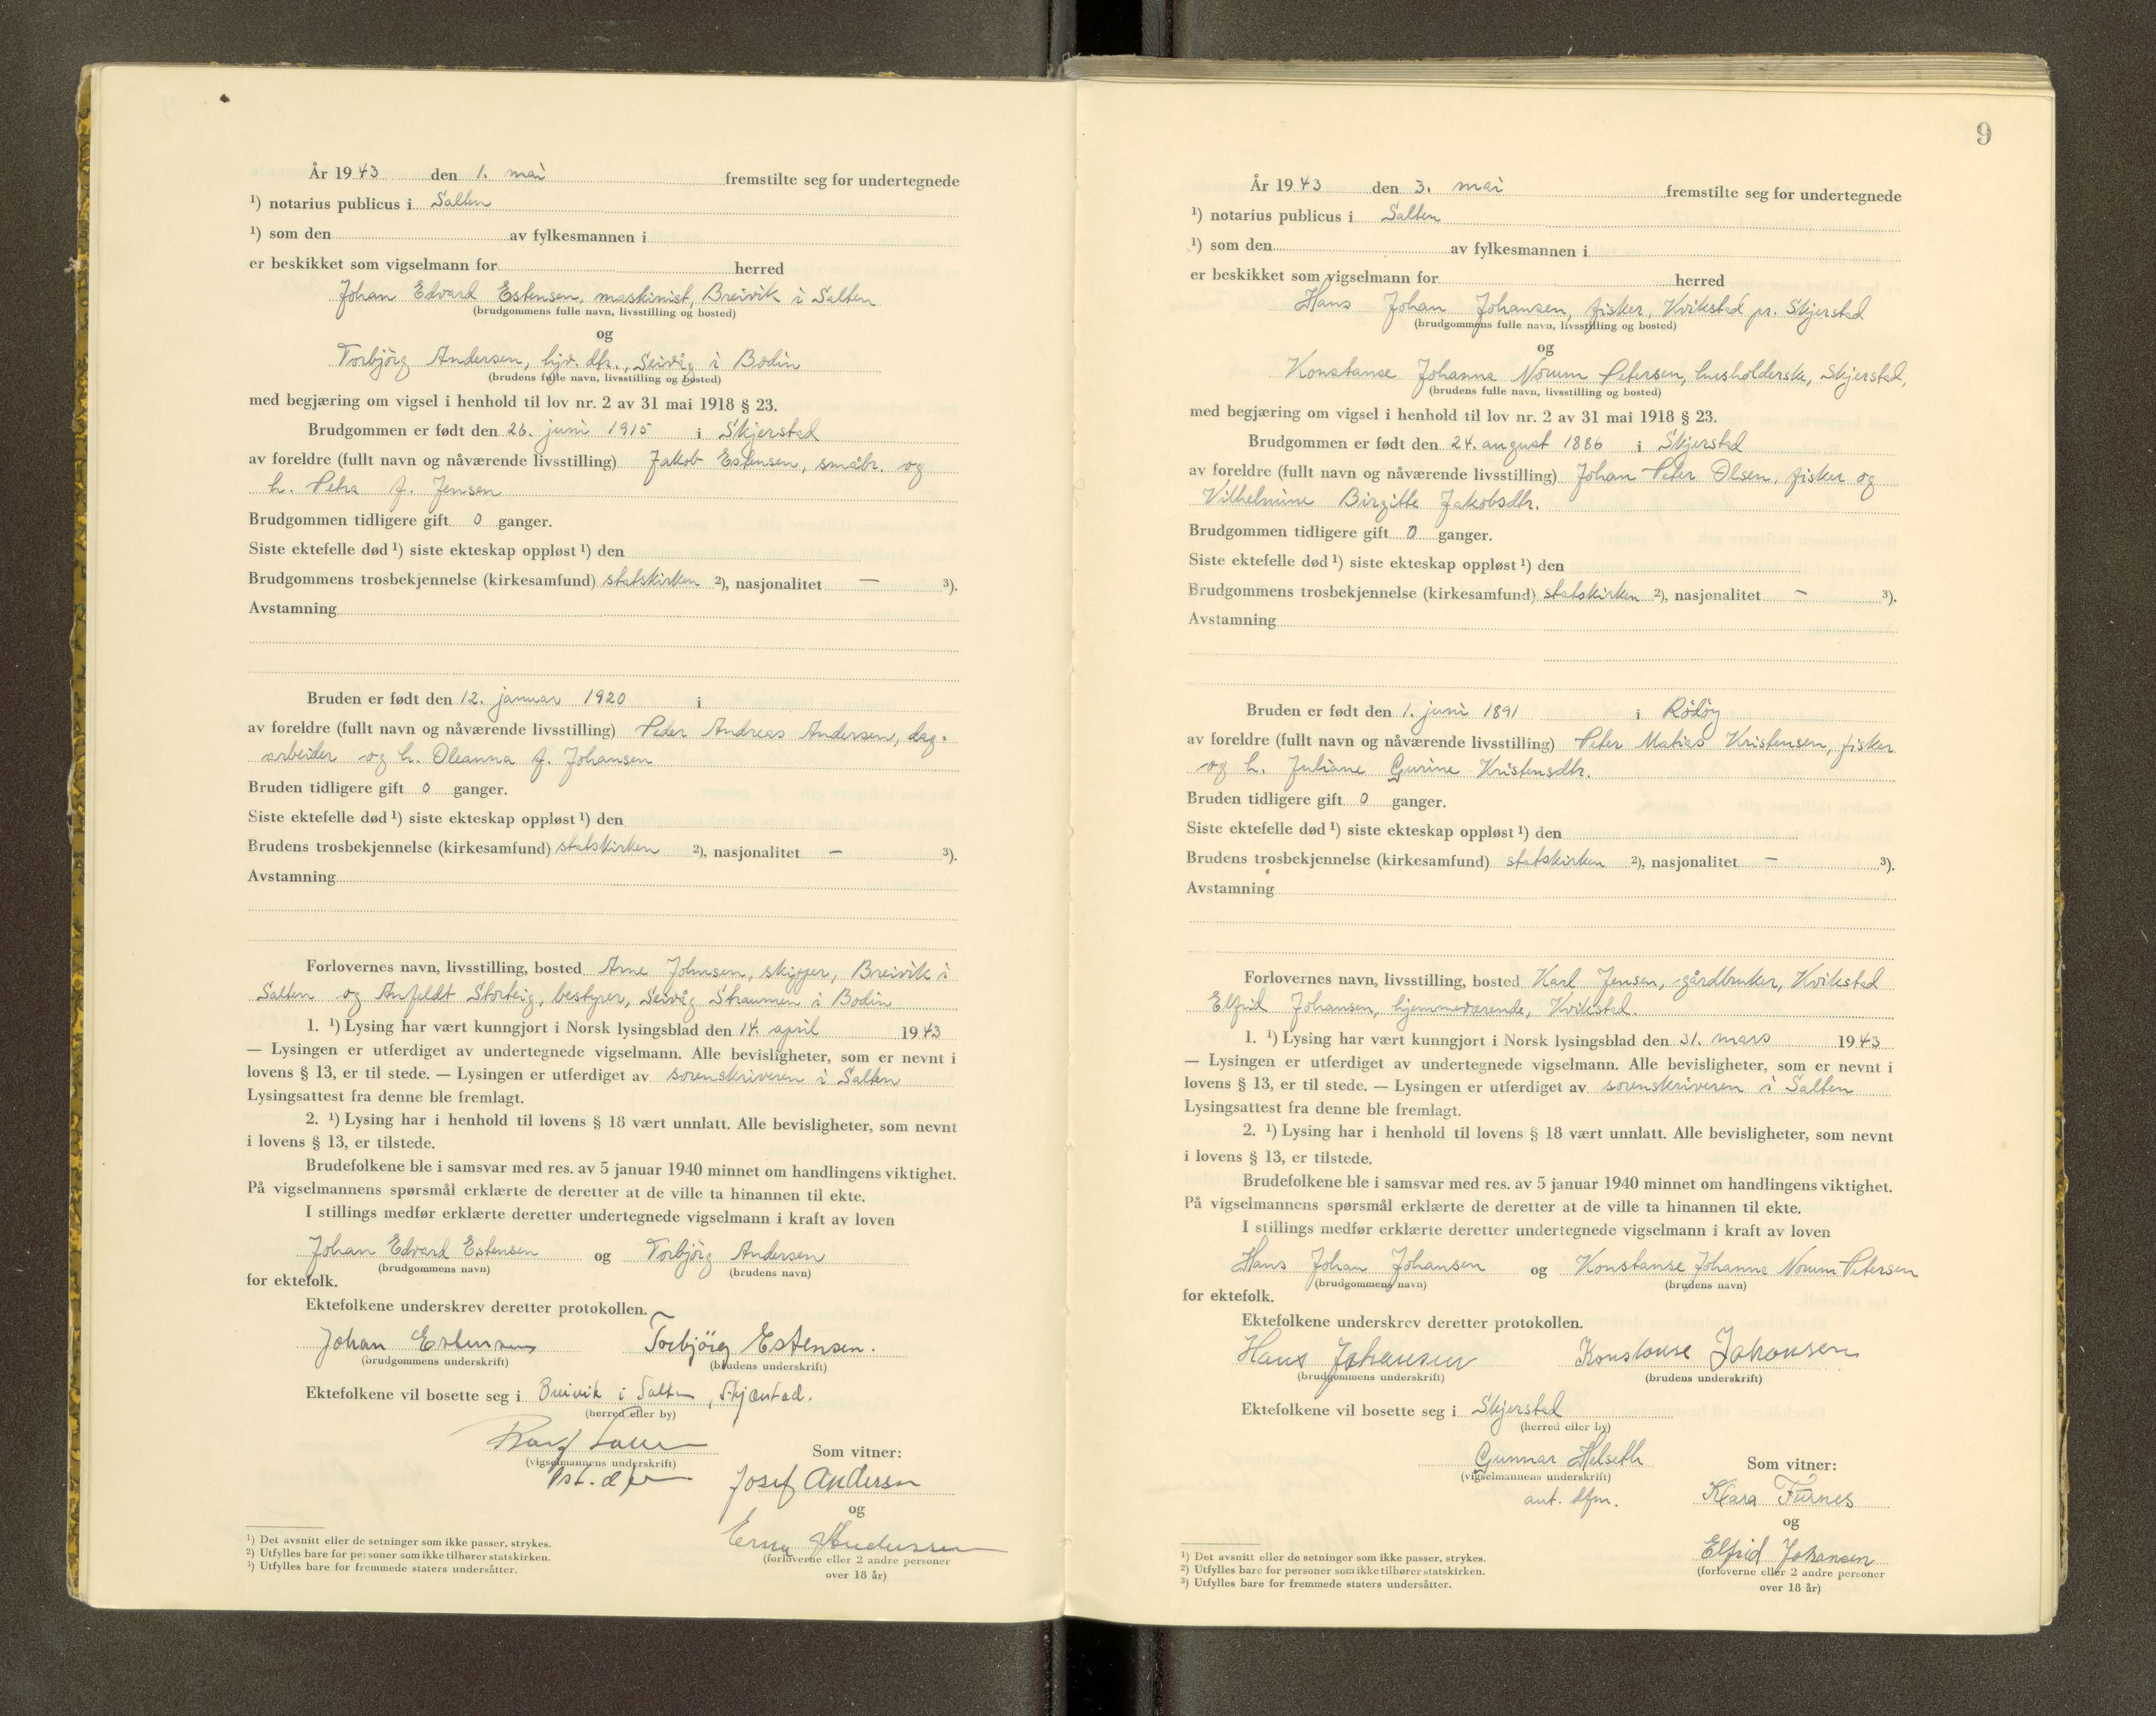 År 1943 den 1. mai fremstilte seg for undertegnede
¹) notarius publicus i Salten
¹) som den av fylkesmannen i
er beskikket som vigselmann for herred
Johan Edvard Estensen, maskinist, Breivik i Salten
(brudgommens fulle navn, livsstilling og bosted)
og
Torbjörg Andersen, hjv. dtr., Seivåg i Bodin
(brudens fulle navn, livsstilling og bosted)
med begjæring om vigsel i henhold til lov nr. 2 av 31 mai 1918 § 23.
Brudgommen er født den 26. juni 1915 i Skjerstad
av foreldre (fullt navn og nåværende livsstilling) Jakob Estensen, småbr. og
h. Petra f. Jensen
Brudgommen tidligere gift 0 ganger.
Siste ektefelle død ¹) siste ekteskap oppløst ¹) den
Brudgommens trosbekjennelse (kirkesamfund) statskirken ²), nasjonalitet — ³).
Avstamning
Bruden er født den 12. januar 1920 i
av foreldre (fullt navn og nåværende livsstilling) Peder Andreas Andersen, dag-
arbeider og h. Oleanna f. Johansen
Bruden tidligere gift 0 ganger.
Siste ektefelle død ¹) siste ekteskap oppløst ¹) den
Brudens trosbekjennelse (kirkesamfund) statskirken ²), nasjonalitet — ³).
Avstamning
Forlovernes navn, livsstilling, bosted Arne Johnsen, skipper, Breivik i
Salten og Anfeldt Storteig, bestyrer, Seivåg Straumen i Bodin
1. ¹) Lysing har vært kunngjort i Norsk lysingsblad den 14. april 1943
— Lysingen er utferdiget av undertegnede vigselmann. Alle bevisligheter, som er nevnt i
lovens § 13, er til stede. — Lysingen er utferdiget av sorenskriveren i Salten
Lysingsattest fra denne ble fremlagt.
2. ¹) Lysing har i henhold til lovens § 18 vært unnlatt. Alle bevisligheter, som nevnt
i lovens § 13, er tilstede.
Brudefolkene ble i samsvar med res. av 5 januar 1940 minnet om handlingens viktighet.
På vigselmannens spørsmål erklærte de deretter at de ville ta hinannen til ekte.
I stillings medfør erklærte deretter undertegnede vigselmann i kraft av loven
Johan Edvard Estensen og Torbjörg Andersen
(brudgommens navn) (brudens navn)
for ektefolk.
Ektefolkene underskrev deretter protokollen.
Johan Estensen Torbjörg Estensen.
(brudgommens underskrift) (brudens underskrift)
Ektefolkene vil bosette seg i Breivik i Salten, Skjerstad.
(herred eller by)
Som vitner:
(vigselmannens underskrift)
Josef Andersen
og
Erna Andersen
(forloverne eller 2 andre personer
over 18 år)
¹) Det avsnitt eller de setninger som ikke passer, strykes.
²) Utfylles bare for personer som ikke tilhører statskirken.
³) Utfylles bare for fremmede staters undersåtter.
9
År 1943 den 3. mai fremstilte seg for undertegnede
¹) notarius publicus i Salten
¹) som den av fylkesmannen i
er beskikket som vigselmann for herred
Hans Johan Johansen, fisker, Kvikstad pr. Skjerstad
(brudgommens fulle navn, livsstilling og bosted)
og
Konstanse Johanna Norum Petersen, husholderske, Skjerstad,
(brudens fulle navn, livsstilling og bosted)
med begjæring om vigsel i henhold til lov nr. 2 av 31 mai 1918 § 23.
Brudgommen er født den 24. august 1886 i Skjerstad
av foreldre (fullt navn og nåværende livsstilling) Johan Peter Olsen, fisker og
Vilhelmine Birgitte Jakobsdtr.
Brudgommen tidligere gift 0 ganger.
Siste ektefelle død ¹) siste ekteskap oppløst ¹) den
Brudgommens trosbekjennelse (kirkesamfund) statskirken ²), nasjonalitet — ³).
Avstamning
Bruden er født den 1. juni 1891 i Rödöy
av foreldre (fullt navn og nåværende livsstilling) Peter Matias Kristensen, fisker
og h. Juliane Gurine Kristensdtr.
Bruden tidligere gift 0 ganger.
Siste ektefelle død ¹) siste ekteskap oppløst ¹) den
Brudens trosbekjennelse (kirkesamfund) statskirken ²), nasjonalitet — ³).
Avstamning
Forlovernes navn, livsstilling, bosted Karl Jensen, gårdbruker, Kvikstad
Elfrid Johansen, hjemmeværende, Kvikstad.
1. ¹) Lysing har vært kunngjort i Norsk lysingsblad den 31. mars 1943
— Lysingen er utferdiget av undertegnede vigselmann. Alle bevisligheter, som er nevnt i
lovens § 13, er til stede. — Lysingen er utferdiget av sorenskriveren i Salten
Lysingsattest fra denne ble fremlagt.
2. ¹) Lysing har i henhold til lovens § 18 vært unnlatt. Alle bevisligheter, som nevnt
i lovens § 13, er tilstede.
Brudefolkene ble i samsvar med res. av 5 januar 1940 minnet om handlingens viktighet.
På vigselmannens spørsmål erklærte de deretter at de ville ta hinannen til ekte.
I stillings medfør erklærte deretter undertegnede vigselmann i kraft av loven
Hans Johan Johansen og Konstanse Johanna Norum Petersen
(brudgommens navn) (brudens navn)
for ektefolk.
Ektefolkene underskrev deretter protokollen.
Hans Johansen Konstanse Johansen
(brudgommens underskrift) (brudens underskrift)
Ektefolkene vil bosette seg i Skjerstad
(herred eller by)
Gunnar Helseth Som vitner:
(vigselmannens underskrift)
aut. dfm. Klara Furnes
og
Elfrid Johansen
(forloverne eller 2 andre personer
over 18 år)
¹) Det avsnitt eller de setninger som ikke passer, strykes.
²) Utfylles bare for personer som ikke tilhører statskirken.
³) Utfylles bare for fremmede staters undersåtter.